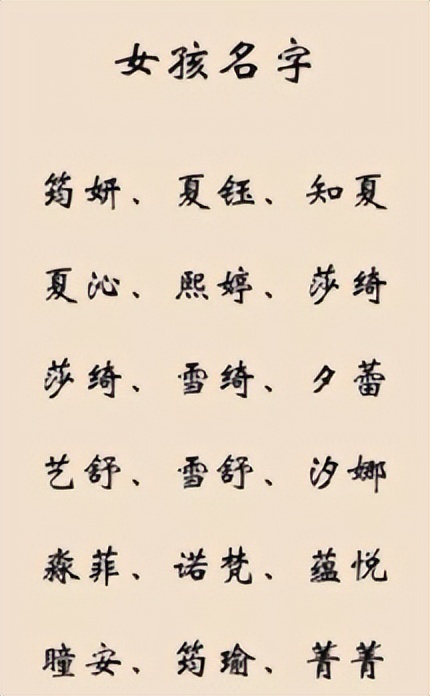 女孩名字
筠妍、夏钰、知夏
夏沁、熙婷、莎绮
莎绮、雪绮、夕蕾
艺舒、雪舒、汐娜
淼菲、诺梵、蕴悦
瞳安、筠瑜、菁菁